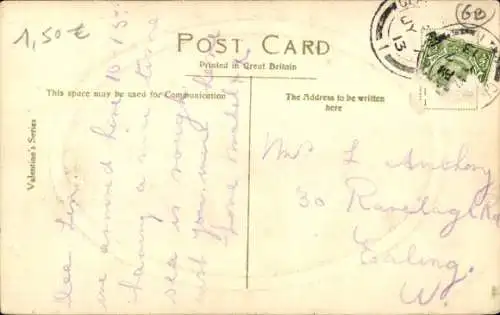 1,50 €
GB
POST CARD
Printed in Great Britain
This space may be used for Communication
The Address to be written
here
Valentine's Series
JY
13
Dea
we arrived here 10.15
having a nice time
sea is rough
Love
Mrs L Anthony
30
Ealing.
W.